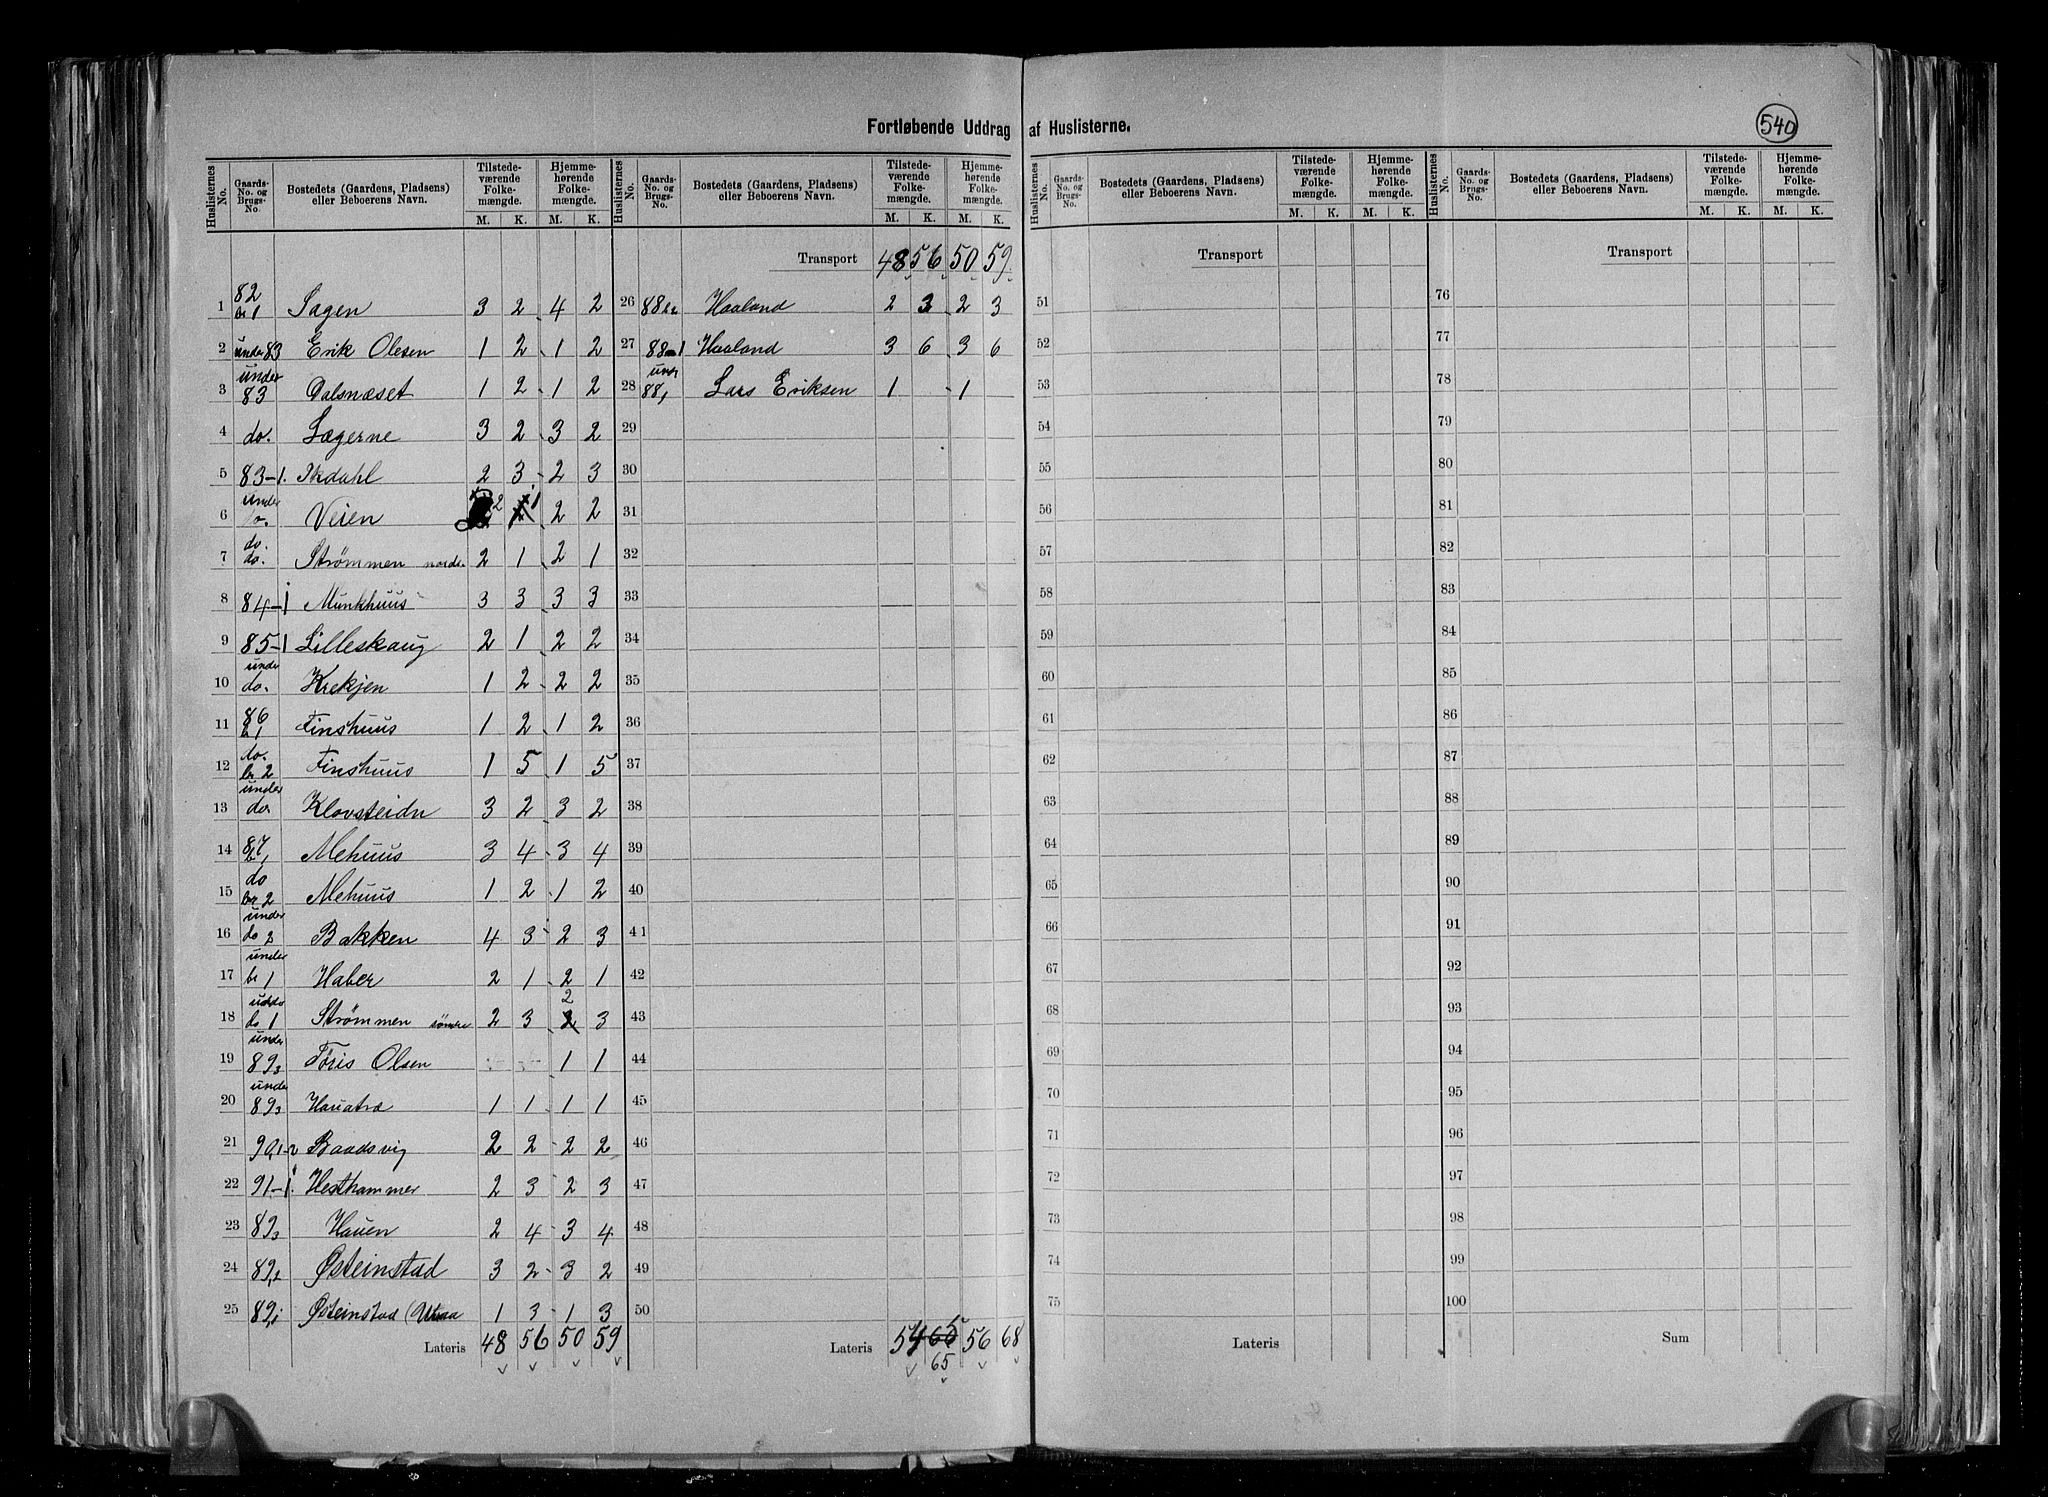 540
Fortløbende Uddrag af Huslisternes.
Huslisternes No. | Gaards-No. og Brugs-No. | Bostedets (Gaardens, Pladsens) eller Beboerens Navn. | Tilstedeværende Folkemængde. M. K. | Hjemmehørende Folkemængde. M. K.
1 82 br 1 Sagen 3 2 4 2
2 under 83 Erik Olesen 1 2 1 2
3 under 83 Dalsnæset 1 2 1 2
4 do. Lægerne 3 2 3 2
5 83-1. Ikdahl 2 3 2 3
6 under do. Veien 2 1 2 2
7 do. do. Strømmen nordr. 2 1 2 1
8 84-1 Munkhuus 3 3 3 3
9 85-1 Lilleskaug 2 1 2 2
10 under do. Krekjen 1 2 2 2
11 86 b, 1 Finshuus 1 2 1 2
12 do. br 2 Finshuus 1 5 1 5
13 under do. Klovsteidn 3 2 3 2
14 87 b, 1 Mehuus 3 4 3 4
15 do br 2 Mehuus 1 2 1 2
16 under do 2 Bakken 4 3 2 3
17 under br 1 Haber 2 1 2 1
18 under do 1 Strømmen søndre 2 3 2 3
19 under 89,3 Tøris Olsen 1 1
20 under 89,3 Hauatræ 1 1 1 1
21 90,1-2 Baadsvig 2 2 2 2
22 91-1. Hesthammer 2 3 2 3
23 89,3 Hauen 2 4 3 4
24 89,2 Østeinstad 3 2 3 2
25 89,1 Østeinstad 1 3 1 3
Lateris 48 56 50 59
Huslisternes No. | Gaards-No. og Brugs-No. | Bostedets (Gaardens, Pladsens) eller Beboerens Navn. | Tilstedeværende Folkemængde. M. K. | Hjemmehørende Folkemængde. M. K.
Transport 48 56 50 59
26 88 b,2 Haaland 2 3 2 3
27 88-1 Haaland 3 6 3 6
28 undr 88, Lars Eriksen 1 1
29
30
31
32
33
34
35
36
37
38
39
40
41
42
43
44
45
46
47
48
49
50
Lateris 54 65 56 68
65
Huslisternes No. | Gaards-No. og Brugs-No. | Bostedets (Gaardens, Pladsens) eller Beboerens Navn. | Tilstedeværende Folkemængde. M. K. | Hjemmehørende Folkemængde. M. K.
Transport
51
52
53
54
55
56
57
58
59
60
61
62
63
64
65
66
67
68
69
70
71
72
73
74
75
Lateris
Huslisternes No. | Gaards-No. og Brugs-No. | Bostedets (Gaardens, Pladsens) eller Beboerens Navn. | Tilstedeværende Folkemængde. M. K. | Hjemmehørende Folkemængde. M. K.
Transport
76
77
78
79
80
81
82
83
84
85
86
87
88
89
90
91
92
93
94
95
96
97
98
99
100
Sum